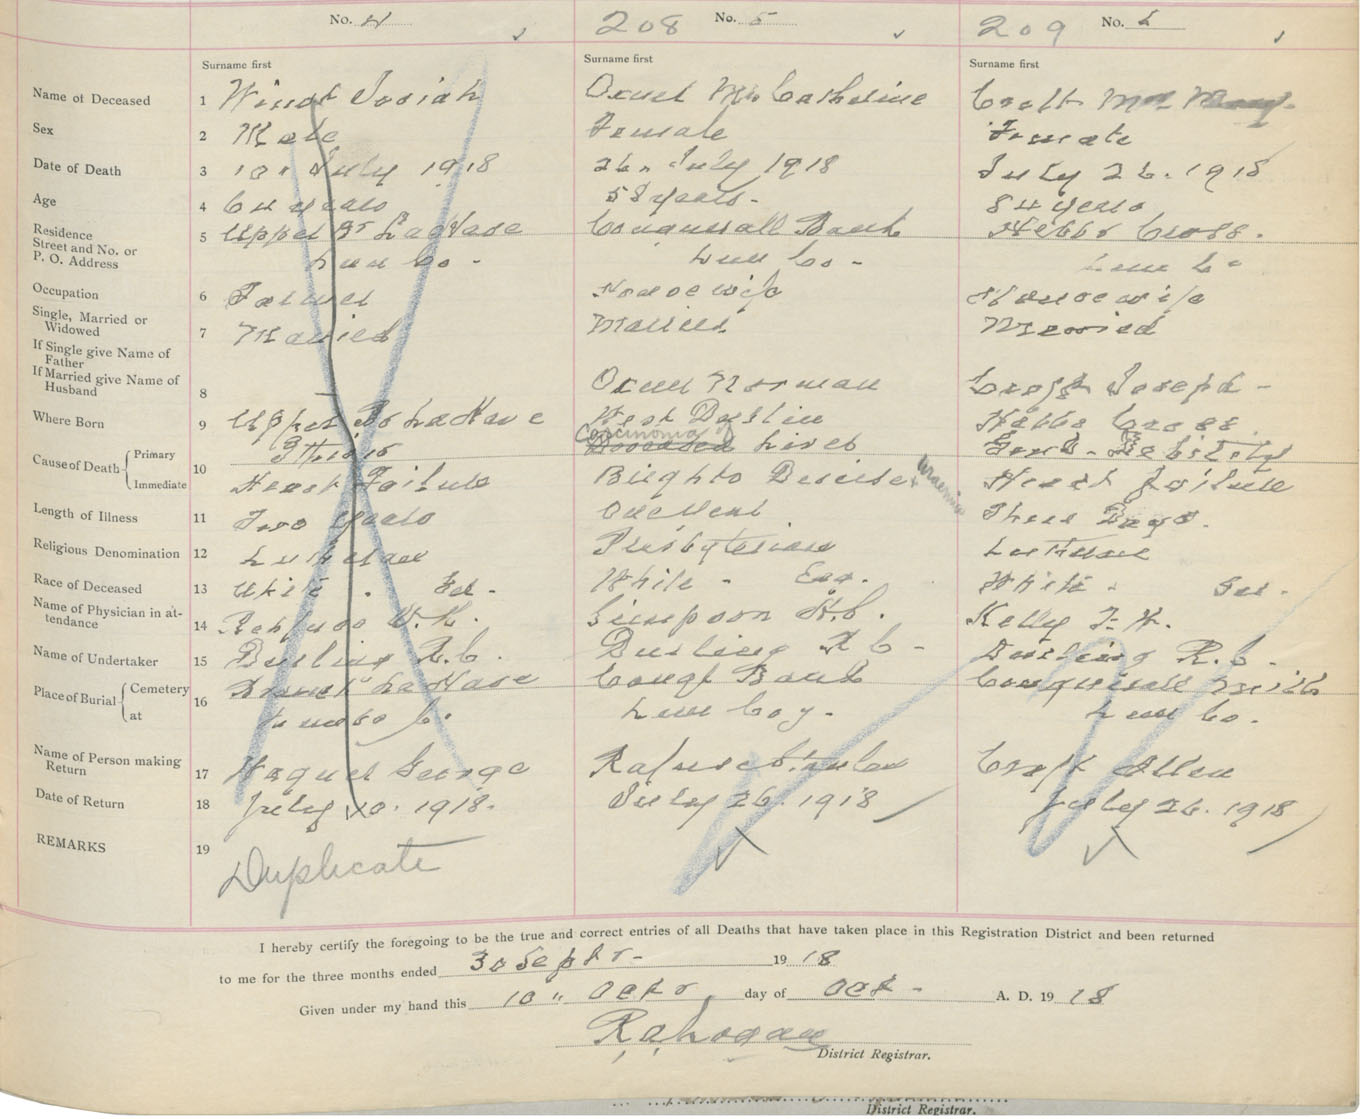 No. 4 208 No. 5 209 No. 6
Surname first Surname first Surname first
Name of Deceased 1 Josiah Oxner Mrs Catherine Mrs
Sex 2 Male Female Female
Date of Death 3 10" July 1918 26" July 1918 July 26. 1918
Age 4 64 years 58 years. 84 years
Residence
Street and No. or
P. O. Address
5 Upper Br LaHave Conquerall Bank Hebbs Cross.
Lun Co. Lun Co. Lun Co
Occupation 6 Farmer Housewife Housewife
Single, Married or
Widowed
7 Married Married Married
If Single give Name of
Father
If Married give Name of
Husband
8 — Oxner Norman Joseph
Where Born 9 Upper Br LaHave West Dublin Hebbs Cross
Cause of Death Primary Pthisis Carcinoma of Liver Genl. Debility
10
Immediate Heart Failure Brights Desise Uraemia Heart Failure
Length of Illness 11 Two years One Year Three Days.
Religious Denomination 12 Lutheran Presbyterian Lutheran
Race of Deceased 13 White. Ger. White - Eng. White. Ger.
Name of Physician in at-
tendance
14 Simpson Kelly
Name of Undertaker 15 R. C. R C R. C.
Place of Burial Cemetery LaHave Conq Bank Conquerall Mills
16
at Lunbg Co. Lun Coy. Lun Co.
Name of Person making
Return
17 George Rafuse Croft Allen
Date of Return 18 July 10. 1918. July 26. 1918 July 26. 1918
REMARKS 19 Duplicate
I hereby certify the foregoing to be the true and correct entries of all Deaths that have taken place in this Registration District and been returned
to me for the three months ended 30 Sept 1918
Given under my hand this 10" Octr day of Oct A. D. 1918
District Registrar.
District Registrar.